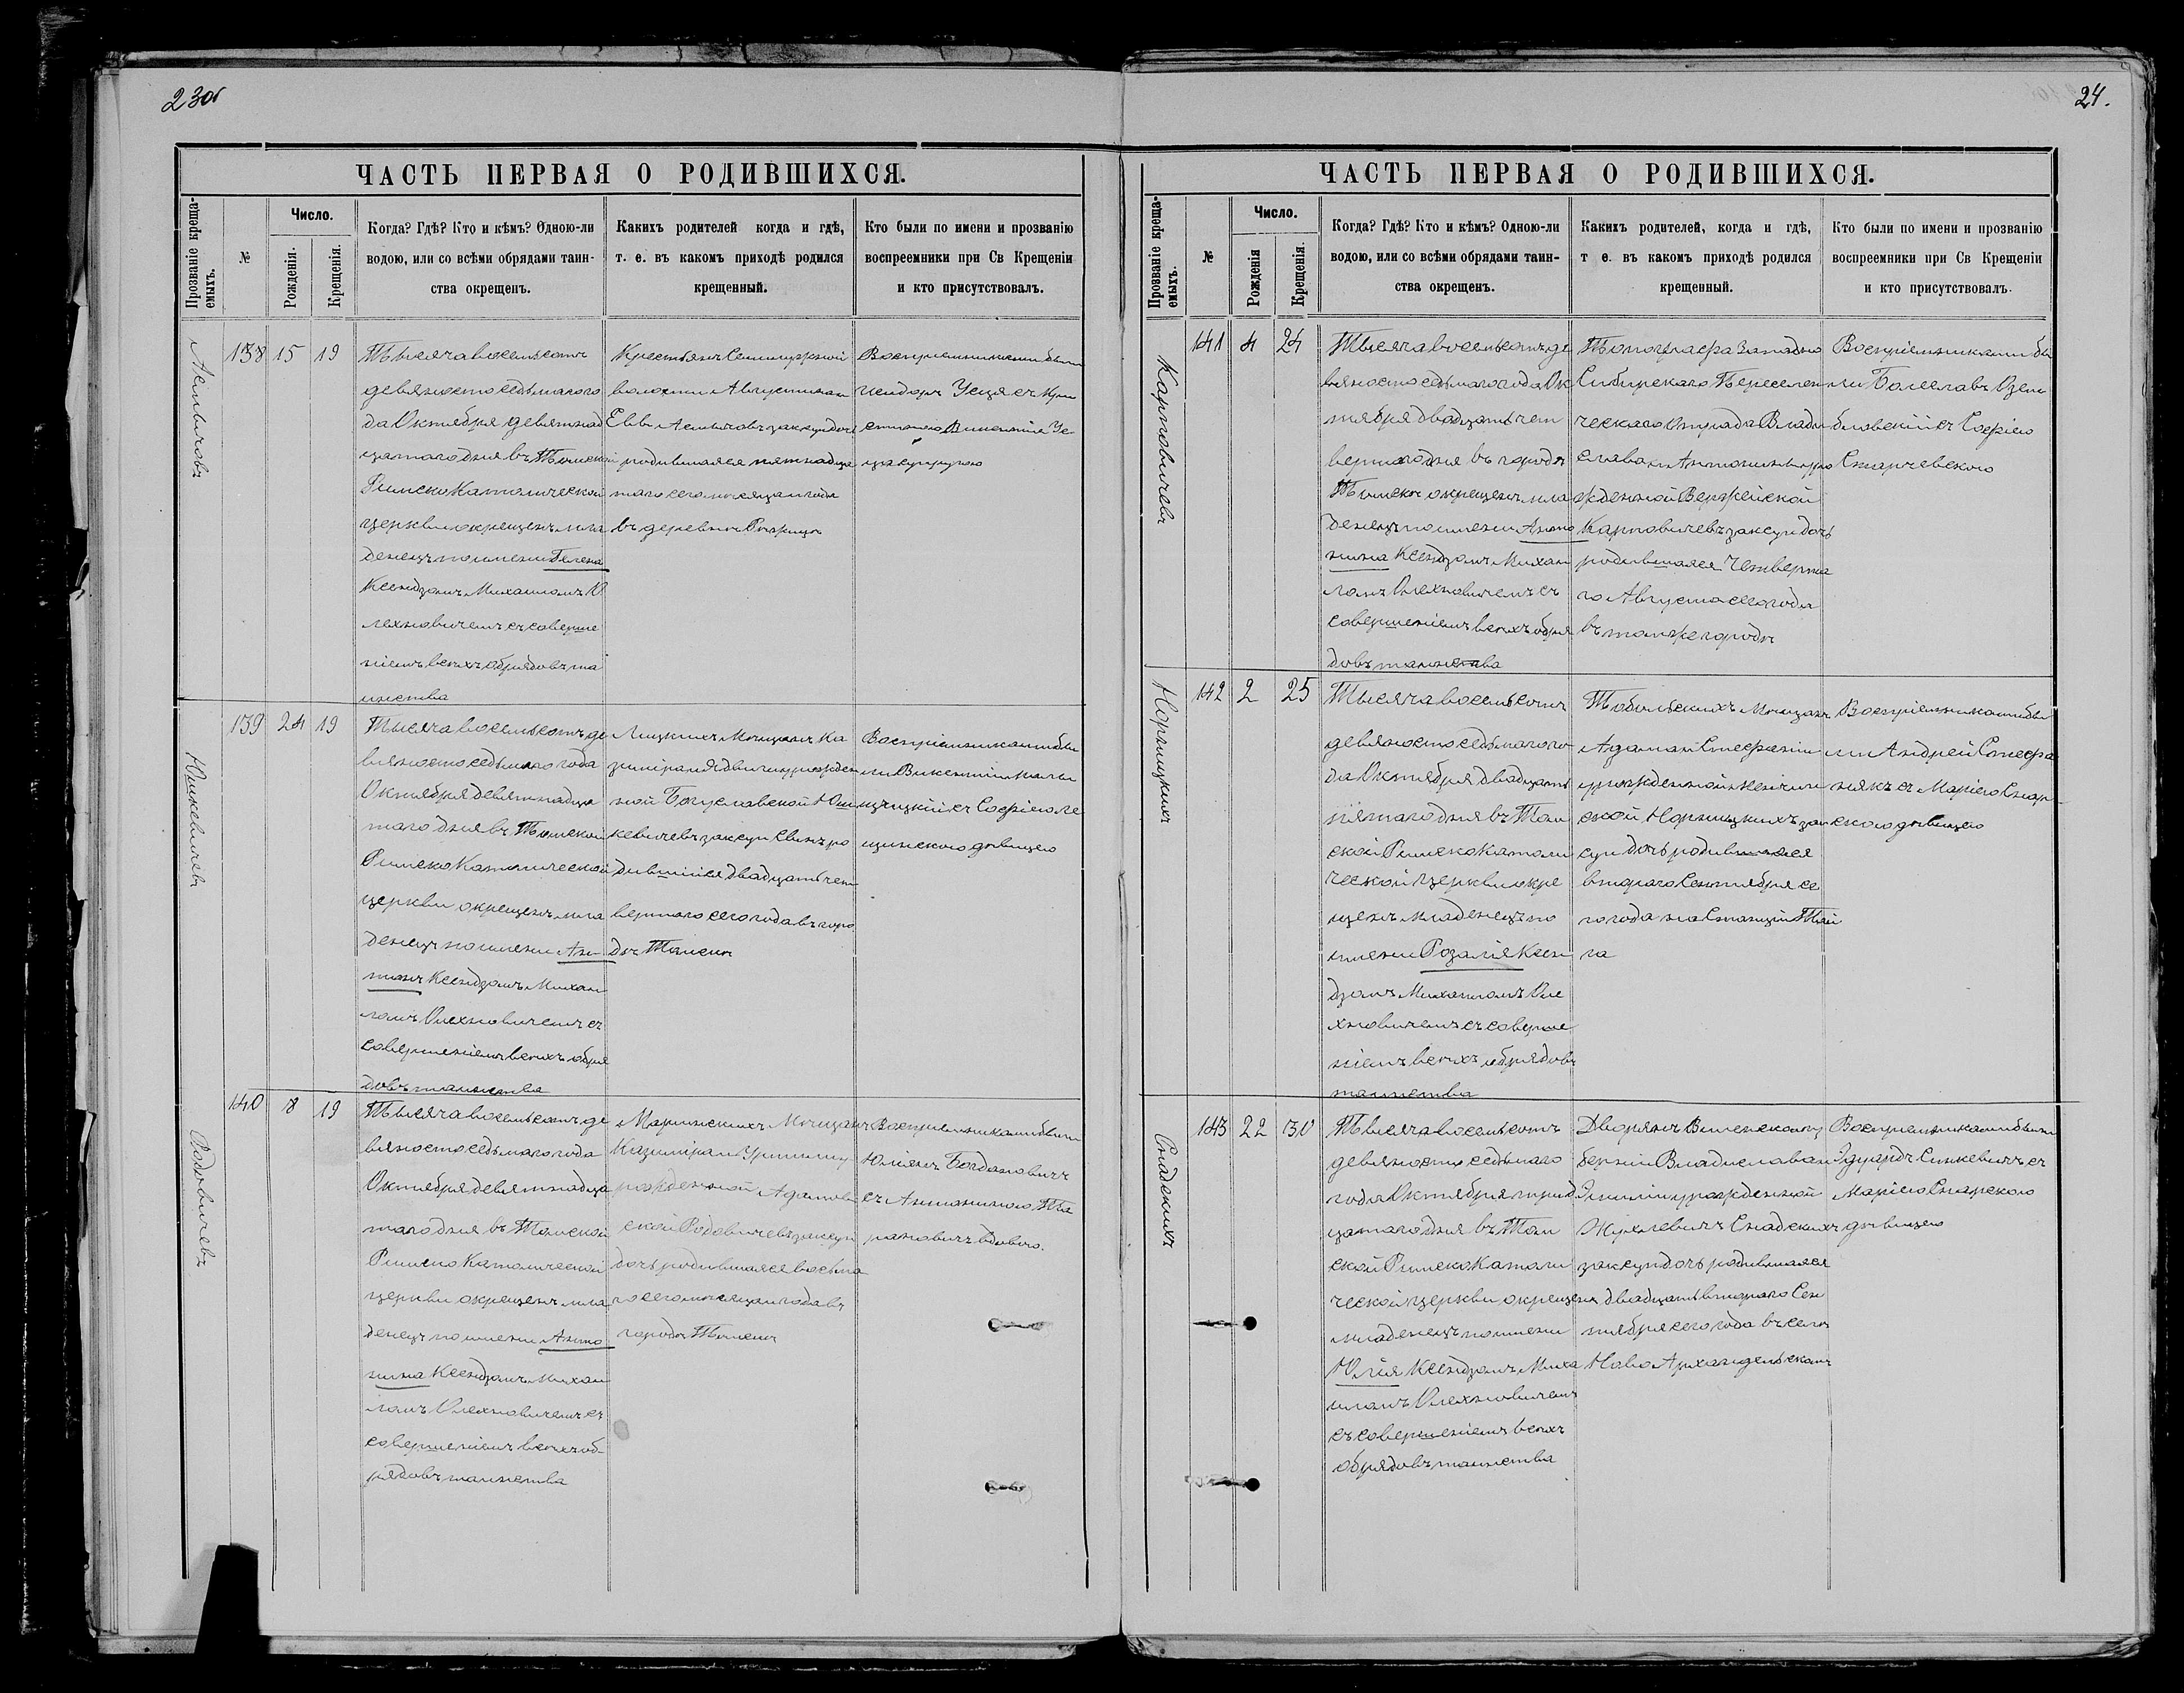 23об
ЧАСТЬ ПЕРВАЯ О РОДИВШИХСЯ.
Прозваніе креща-
емыхъ.
№
Число.
Рожденія.
Крещенія.
Когда? Гдѣ? Кто и кѣмъ? Одною-ли
водою, или со всѣми обрядами таин-
ства окрещенъ.
Какихъ родителей когда и гдѣ,
т. е. въ какомъ приходѣ родился
крещенный.
Кто были по имени и прозванію
воспреемники при Св Крещеніи
и кто присутствовалъ.
138 15 19
Тысяча восемьсотъ
девяносто седьмого го
да Октября девятнад
цатаго дня въ Томской
Римско Католической
церкви окрещенъ мла
денецъ по имени Гелена
Ксендзомъ Михаиломъ О
лехновичемъ съ соверше
ніемъ всѣхъ обрядовъ та
инства
Крестьянъ
волости Августина и
Еввы зак суп дочь
родившаяся пятнадца
таго сего мѣсяца и года
въ деревнѣ
Воспріемниками были
съ Кри
стиною Викентія
ца супругою
Юшкевичевъ
139 24 19
Тысяча восемьсотъ де
вяносто седьмого года
Октября девятнадца
таго дня въ Томской
Римско Католической
церкви окрещенъ мла
денецъ по имени Ан-
тонъ Ксендзомъ Михаи
ломъ Олехновичемъ съ
совершеніемъ всѣхъ обря
довъ таинства
Мѣщанъ Ка
зиміра и Ядвиги урожден
ной Богуславской Юш
кевичевъ зак суп Сынъ ро
дившійся двадцать чет
вертаго сего года въ горо
дѣ Томскѣ
Воспріемниками бы
ли Викентій
съ Софіею Ле
щинскою дѣвицею
Родовичевъ
140 8 19
Тысяча восемьсотъ де
вяносто седьмого года
Октября девятнадца
таго дня въ Томской
Римско Католической
церкви окрещенъ мла
денецъ по имени Анто
нина Ксендзомъ Михаи
ломъ Олехновичемъ съ
совершеніемъ всѣхъ об-
рядовъ таинства
Маріинскихъ Мѣщанъ
Казиміра и Урсулы у
рожденной Адамов
ской Родовичевъ зак суп
дочь родившаяся восьма
го сего мѣсяца и года въ
городѣ Томскѣ
Воспріемниками были
Юліянъ Богдановичъ
съ Антониною
рановичъ вдовою.
24.
ЧАСТЬ ПЕРВАЯ О РОДИВШИХСЯ.
Прозваніе креща-
емыхъ.
№
Число.
Рожденія
Крещенія.
Когда? Гдѣ? Кто и кѣмъ? Одною-ли
водою, или со всѣми обрядами таин-
ства окрещенъ.
Какихъ родителей, когда и гдѣ,
т е. въ какомъ приходѣ родился
крещенный.
Кто были по имени и прозванію
воспреемники при Св Крещеніи
и кто присутствовалъ.
Карповичевъ
141 4 24
Тысяча восемьсотъ де
вяносто седьмого года Ок
тября двадцать чет
вертаго дня въ городѣ
Томскѣ окрещенъ мла
денецъ по имени Анто
нина Ксендзомъ Михаи
ломъ Олехновичемъ съ
совершеніемъ всѣхъ обря
довъ таинства
Топографа Западно
Сибирскаго Переселен
ческаго отряда Влади
слава и Антонины уро
жденной Вержейской
Карповичевъ зак суп дочь
родившаяся Четверта
го Августа сего года
въ томъ же городѣ
Воспріемниками бы
ли Болеславъ Дзем
бловскій съ Софіею
Старчевскою
Норницкихъ
142 2 25
Тысяча восемьсотъ
девяносто седьмого го
да Октября двадцать
пятаго дня въ Том
ской Римско Католи
ческой церкви окре
щенъ младенецъ по
имени Розалія Ксен
дзомъ Михаиломъ Оле
хновичемъ съ соверше
ніемъ всѣхъ обрядовъ
таинства
Тобольскихъ Мѣщанъ
Адама и Стефаніи
урожденной
ской Норницкихъ зак
суп дочь родившаяся
второго Сентября се
го года на Станціи Тай
га
Воспріемниками бы
ли Андрей Стефа
някъ съ Маріею Снар-
скою дѣвицею
Снадскихъ
143 22 30
Тысяча восемьсотъ
девяносто седьмого
года Октября трид
цатаго дня въ Том
ской Римско Католи
ческой церкви окрещенъ
младенецъ по имени
Юлія Ксендзомъ Миха
иломъ Олехновичемъ
съ совершеніемъ всѣхъ
обрядовъ таинства
Дворянъ Виленской гу
берніи Владислава и
Эмиліи урожденной
Снадскихъ
зак суп дочь родившаяся
двадцать второго Сен
тября сего года въ селѣ
Ново Архангельскомъ
Воспріемниками были
Эдуардъ Синкевичъ съ
Маріею Снарскою
дѣвицею